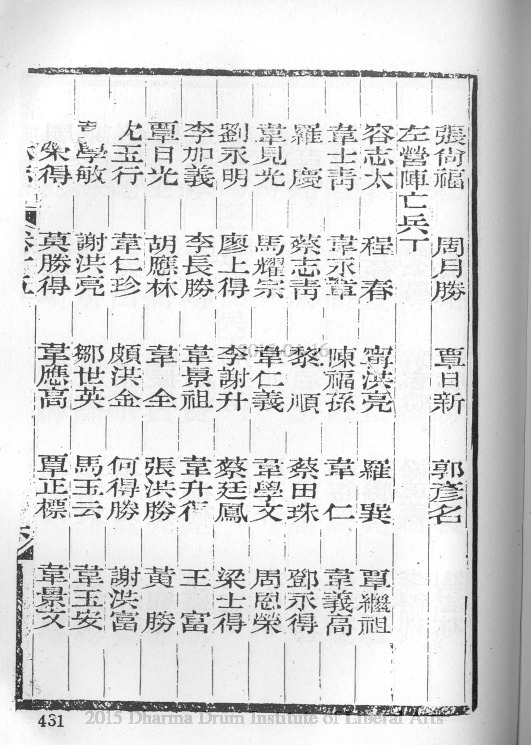 張尙福 周月勝 覃日新 郭彥名
左營陣亡兵丁
容志太 程春 甯洪亮 羅巽 覃繼祖
韋士靑 韋永章 陳福孫 韋仁 韋義高
羅慶 蔡志靑 黎順 蔡田珠 鄧永得
韋見光 馬耀宗 韋仁義 韋學文 周恩榮
劉永明 廖上得 李謝升 蔡廷鳳 梁士得
李加義 李長勝 韋景祖 韋升 王富
覃日光 胡應林 韋全 張洪勝 黃勝
尤玉行 韋仁珍 頗洪金 何得勝 謝洪富
學敏 謝洪亮 鄒世英 馬玉云 韋玉安
榮得 莫勝得 韋應高 覃正標 韋景文
451
2015 Dharma Drum Institute of Liberal Arts